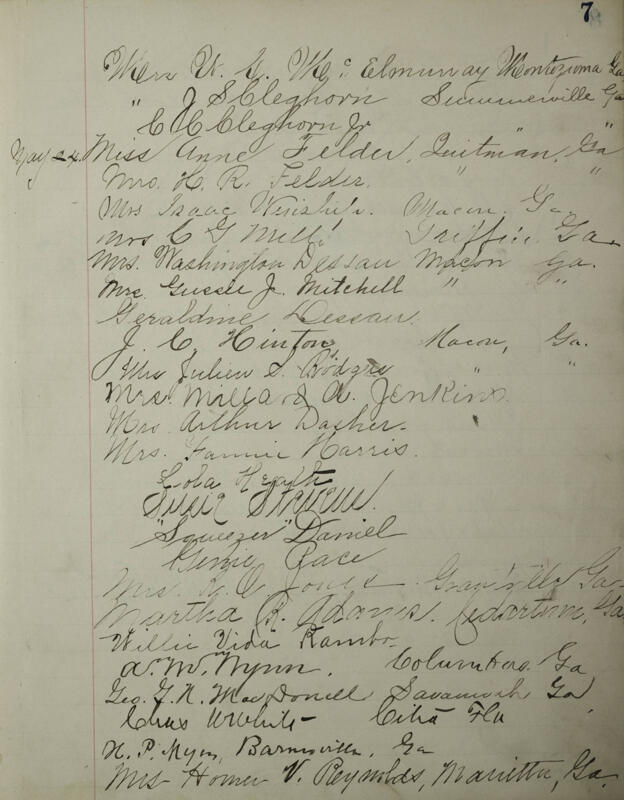 7
Mrs V. E. McElmurray Montezuma Ga
" J S Cleghorn Summerville Ga
C C Cleghorn Jr " "
May 24. Miss Anne Felder, Quitman, Ga
Mrs. H. R. Felder. " "
Mrs Isaac Winship. Macon, Ga
Mrs C G Mills Griffin, Ga.
Mrs. Washington Dessau Macon Ga.
Mrs. Gussie J. Mitchell " "
Geraldine Dessau.
J. C. Hinton, Macon, Ga.
Mrs Julien S. Rodgers " "
Mrs. Willard A. Jenkins.
Mrs. Arthur Dasher.
Mrs. Fannie Harris.
Lola Heath
Susie Stevens.
"Squeezer" Daniel
Race
Mrs. R. O Jones Ga
Martha R. Adams. Cedartown, Ga.
Willie Vida Rambo.
A. M. Wynn. Columbus, Ga
Geo. G. N. MacDonell Savannah Ga
Chas W White Citra Fla
H. P. Myers, Barnesville, Ga
Mrs Homer V. Reynolds, Marietta, Ga.